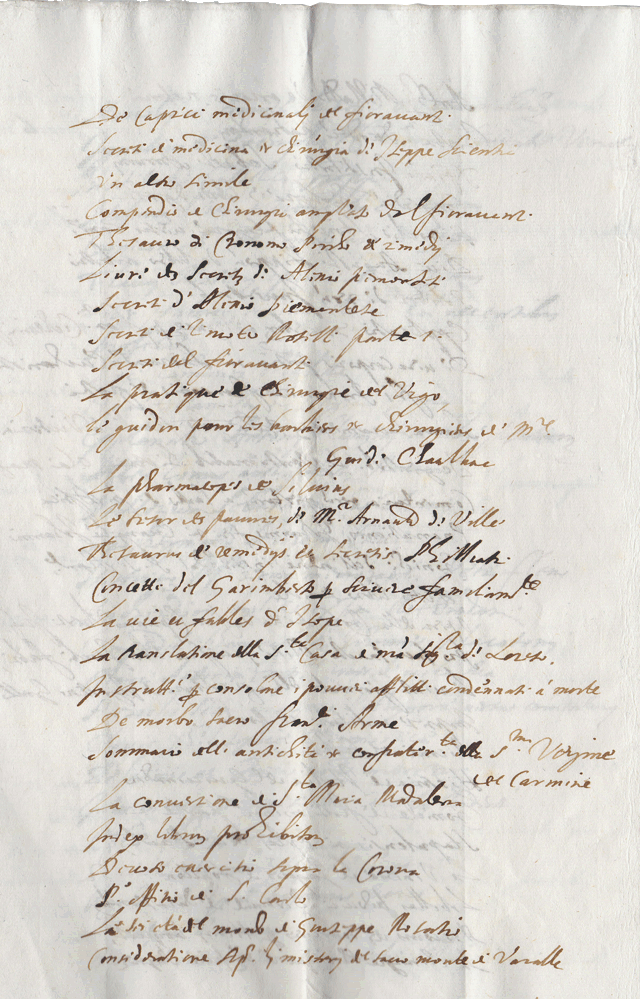 De Caprici medicinalj del fioravanti.
Secreti de medicina et chirurgia di
Un altro simile
Compendio de Chirurgia del fioravanti.
Thesauro di et rimedij
Secreti di Alexio piemontese
Secreti d'Alexio piemontese
Secreti di Rosselli parte 1.
Secreti del fioravanti
La pratique de Chirurgie del Vigo
Le guidon pour les barbiers et chirurgiens de M.e
Guidi Chauliac
La pharmacopee de Silvius
Le tresor des pauvres, di M.r Arnauld di Ville
Thesaurus de remedijs et secretis
Concetti del Garimberto p scrivere familiarm.te
La vie et fables d'Esope
La translatione della S.ta Casa de di Loreto.
Instrutt. p consolare i poveri afflitti condennati à morte
De morbo sacro
Sommario delli antichità et della S.ma Vergine
del Carmine
La conversione di S.ta Maria Madalena
Index librorum prohibitorum
Devoto exercitio sopra la Corona
L'offitio di S. Carlo
del mondo di Giuseppe Rosatio
Consideratione misterij del sacro monte di Varalle